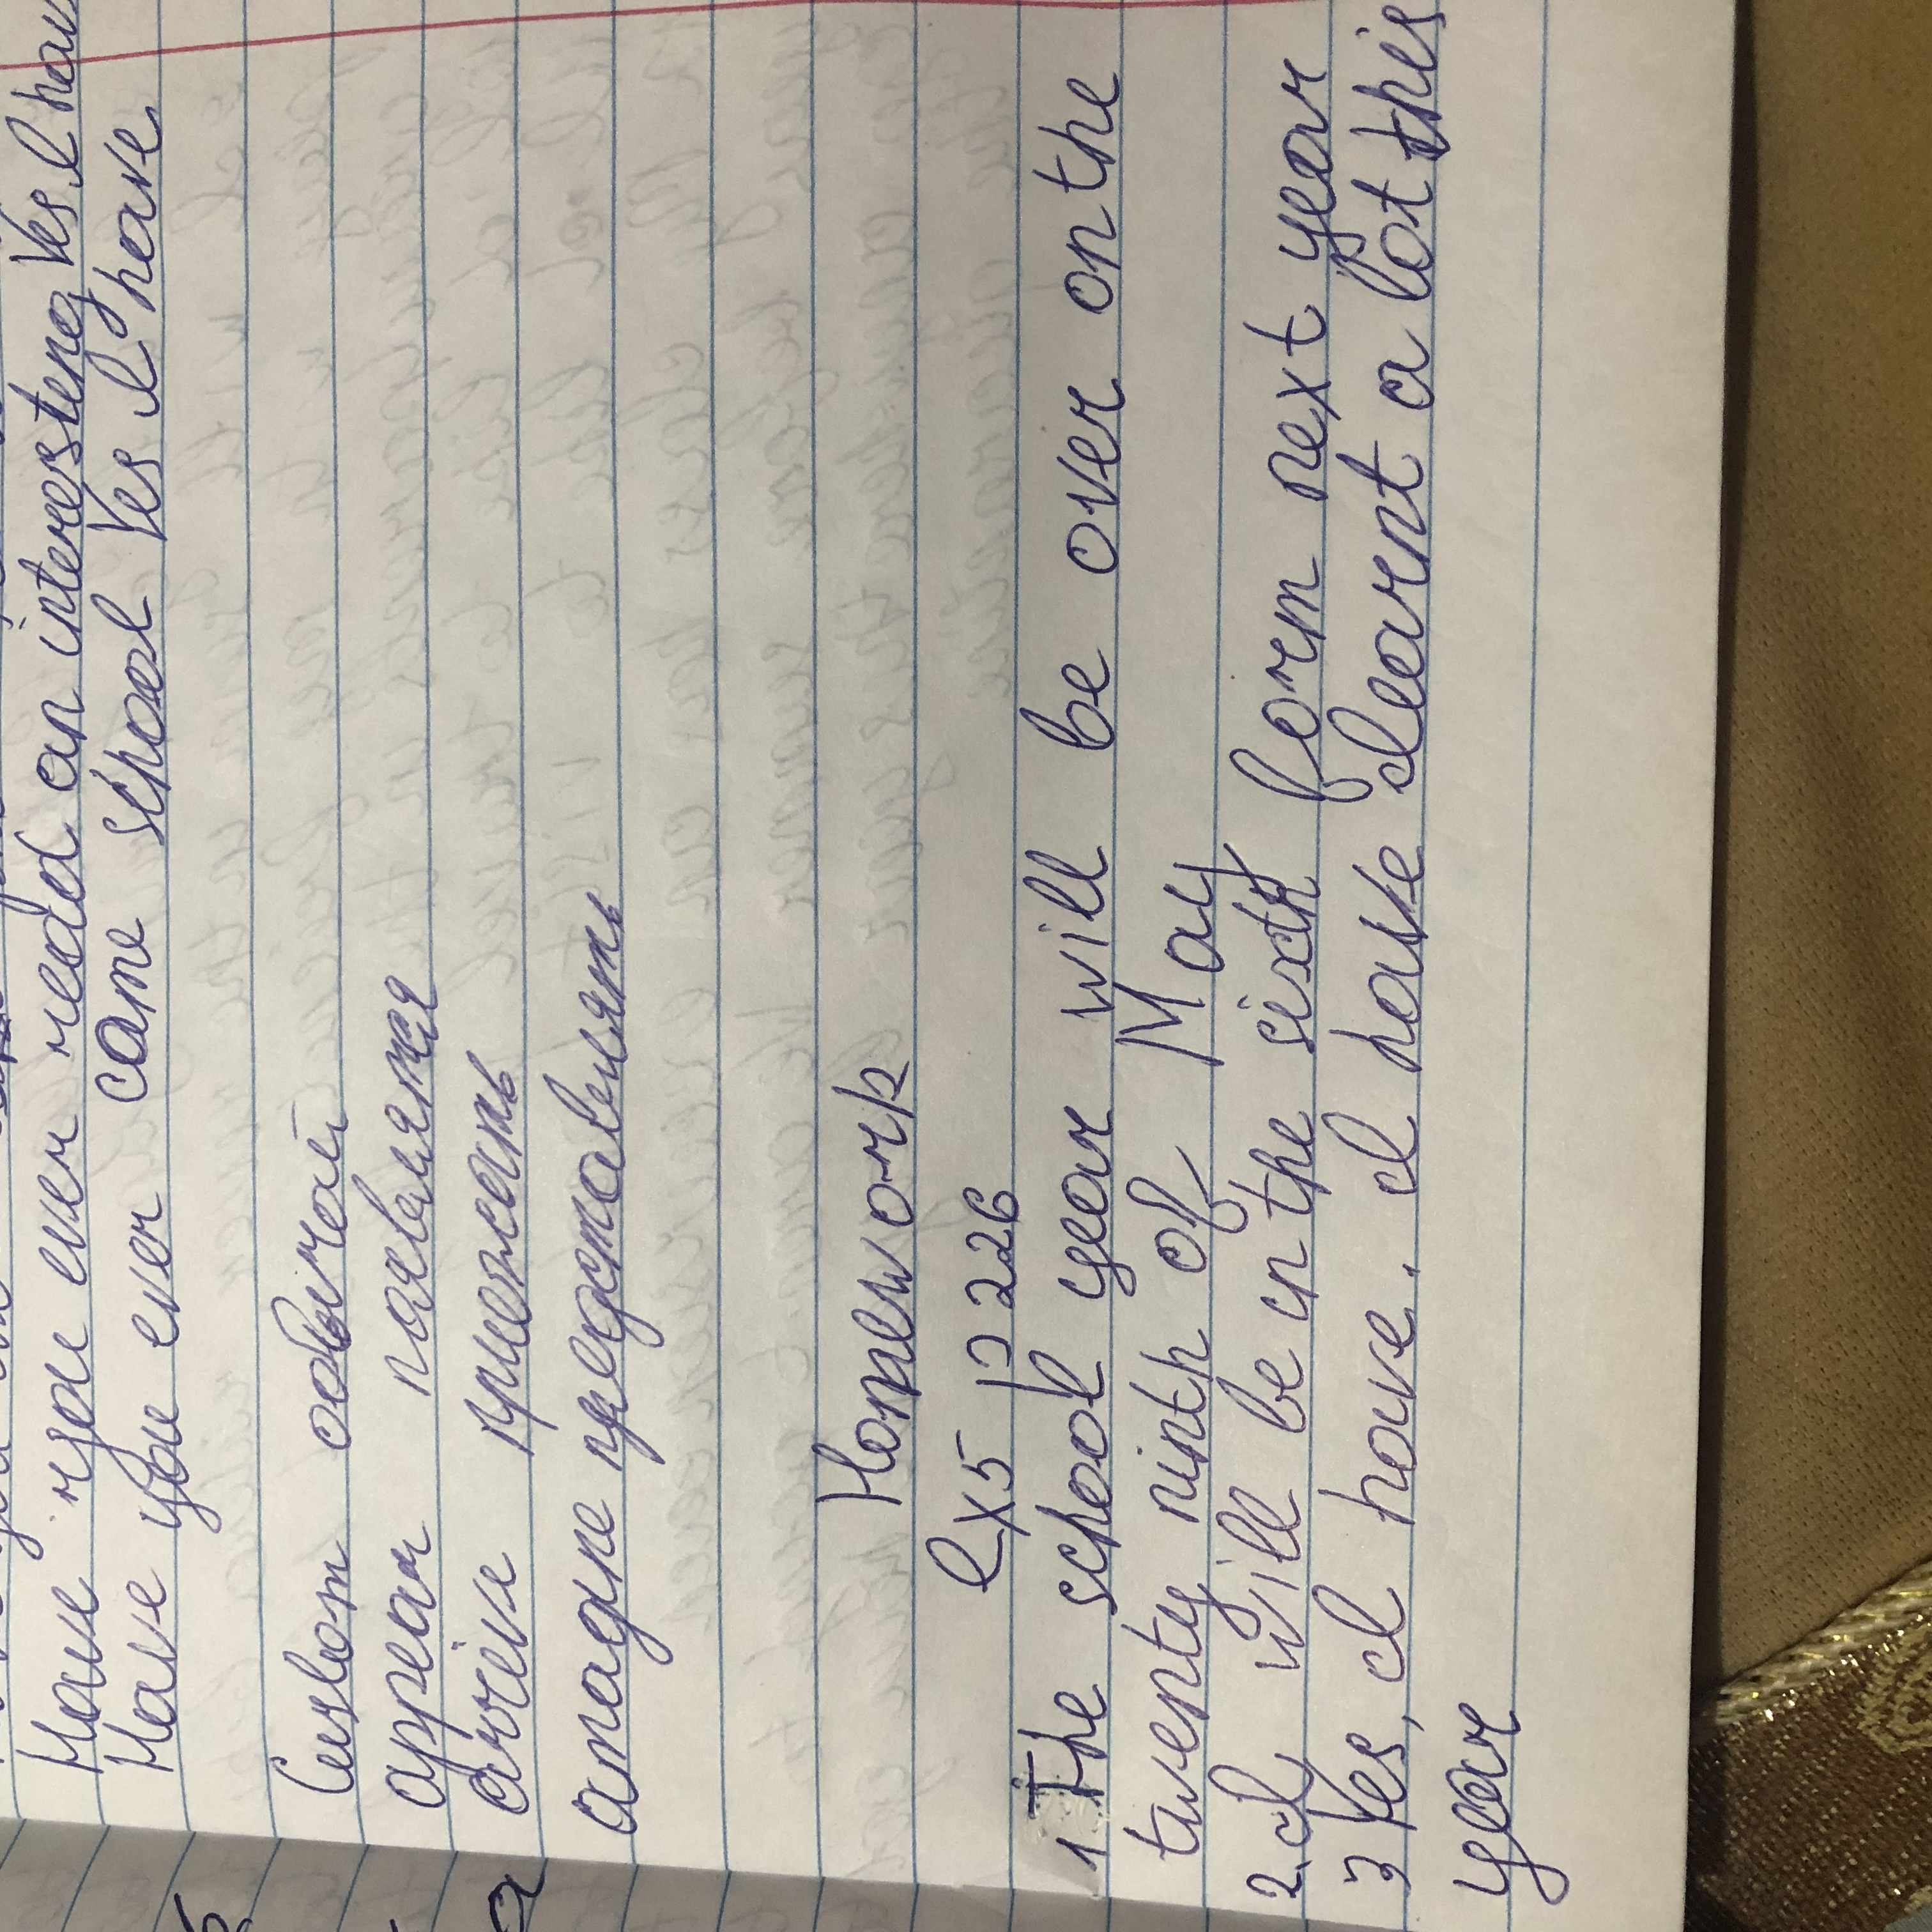 Have you ever read an interesteng Yes I hav
Have you ever came school Yes I have
Custom обычай
appear появлятся
arrive приезжать
amagine представлять
Homework
ex 5 p 226
1 The school year will be over on the
twenty ninth of May
2. I will be in the sixth form next year
3 Yes, I have. I have learnt a lot this
year